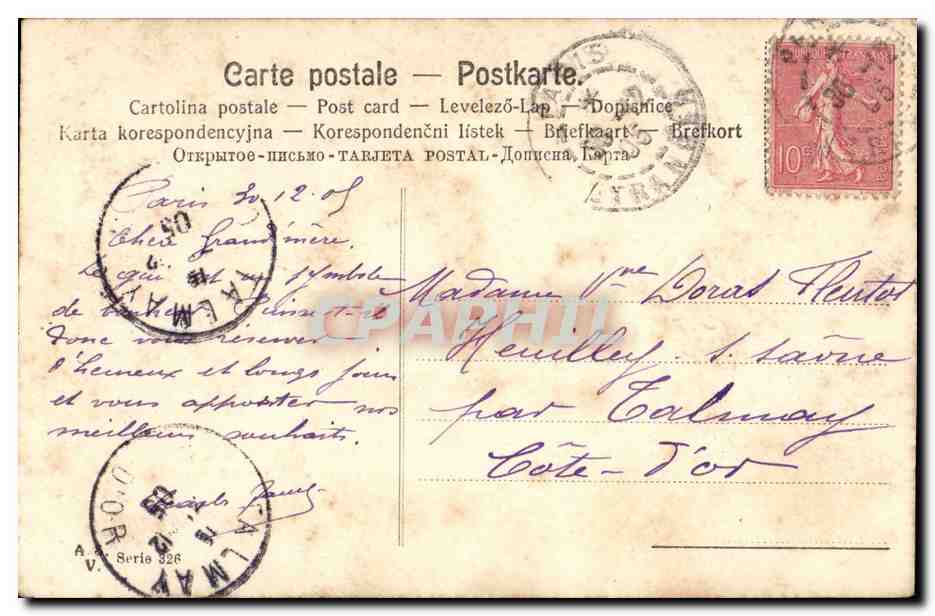 Carte postale — Postkarte.
Cartolina postale — Post card — Levelező-Lap — Dopisnice
Karta korespondencyjna — Korespondenčni lístek — Briefkaart — Brefkort
Открытое-письмо-TARJETA POSTAL-Дописна Карта
PARIS
10c
Paris 30.12.05
TALMAY
05
Chère Grand'mère,
Le qui est un symbole
de bonheur Puisse-t-il
donc vous réserver
d'heureux et longs jours
et vous apporter nos
meilleurs souhaits.
Madame Vve Doras
Heuilley s. Saône
par Talmay
Côte-d'or
CPAPHIL
TALMAY
D'OR
12
05
Serie 326
V.